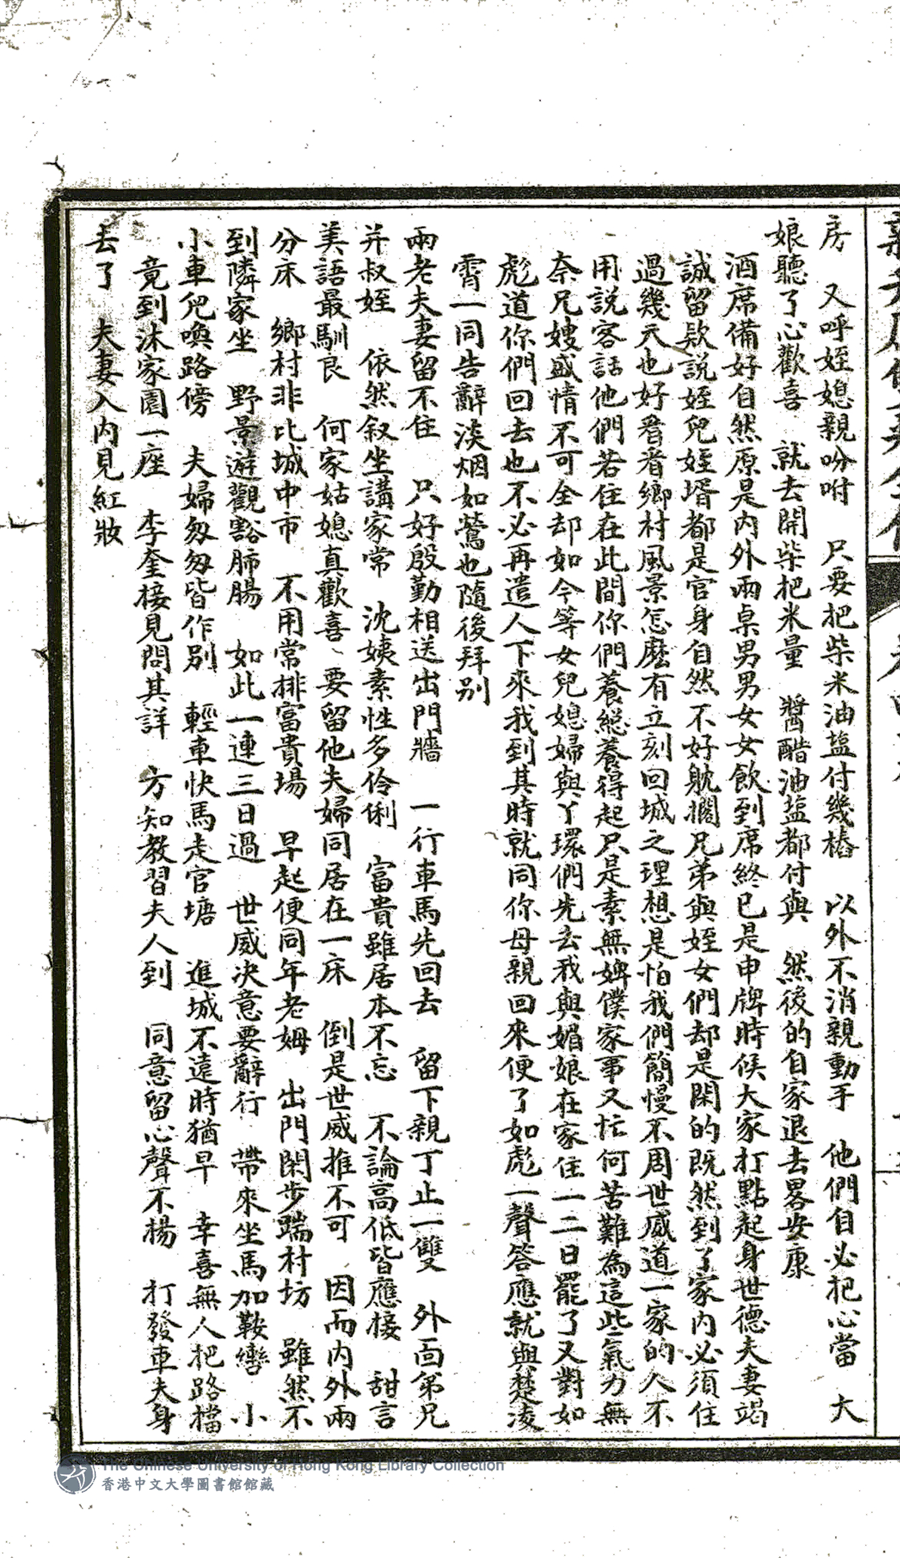 房　又呼姪媳親吩咐　只要把柴米油塩付幾樁　以外不消親動手　他們自必把心當　大
娘聽了心歡喜　就去開柴把米量　醬醋油塩都付與　然後的自家退去畧安康
酒席備好自然原是內外兩桌男男女女飲到席終已是申牌時候大家打點起身世德夫妻竭
誠留欵説姪兒姪壻都是官身自然不好躭擱兄弟與姪女們却是閑的既然到了家內必須住
過幾天也好看看鄉村風景怎麽有立刻回城之理想是怕我們簡慢不周世威道一家的人不
用説客話他們若住在此間你們養縂養得起只是素無婢僕家事又忙何苦難為這些氣力無
奈兄嫂盛情不可全却如今等女兒媳婦與丫環們先去我與媚娘在家住一二日罷了又對如
彪道你們回去也不必再遣人下來我到其時就同你母親回來便了如彪一聲答應就與楚凌
霄一同告辭淡烟如鶯也隨後拜别
兩老夫妻留不住　只好殷勤相送出門牆　一行車馬先回去　留下親丁止一雙　外面弟兄
并叔姪　依然叙坐講家常　沈姨素性多伶俐　富貴雖居本不忘　不論高低皆應接　甜言
美語最馴良　何家姑媳真歡喜　要留他夫婦同居在一床　倒是世威推不可　因而內外兩
分床　鄉村非比城中市　不用常排富貴場　早起便同年老姆　出門閑步踹村坊　雖然不
到隣家坐　野景遊觀豁肺腸　如此一連三日過　世威决意要辭行　帶來坐馬加鞍轡　小
小車兒喚路傍　夫婦匆匆皆作别　輕車快馬走官塘　進城不遠時猶早　幸喜無人把路擋
竟到沐家園一座　李奎接見問其詳　方知教習夫人到　同意留心聲不揚　打發車夫身
去了　夫妻入內見紅妝
The Chinese University of Hong Kong Library Collection
香港中文大學圖書館館藏